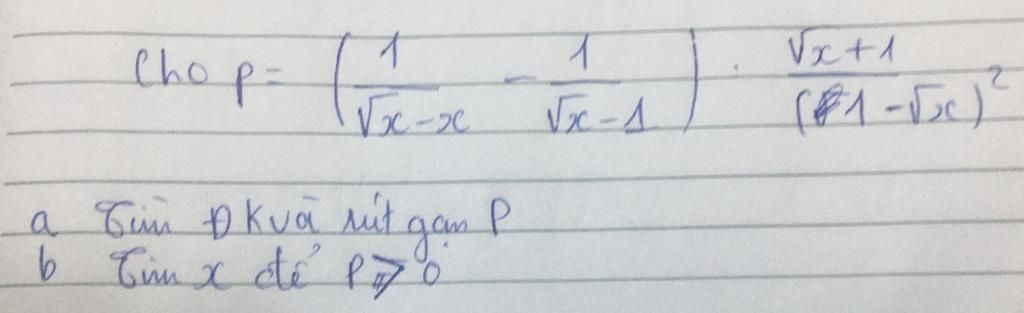 Cho P = (1/(√x - x) - 1/(√x - 1)) . (√x + 1)/(1 - √x)²
a Tìm ĐK và rút gọn P
b Tìm x để P ⩾ 0